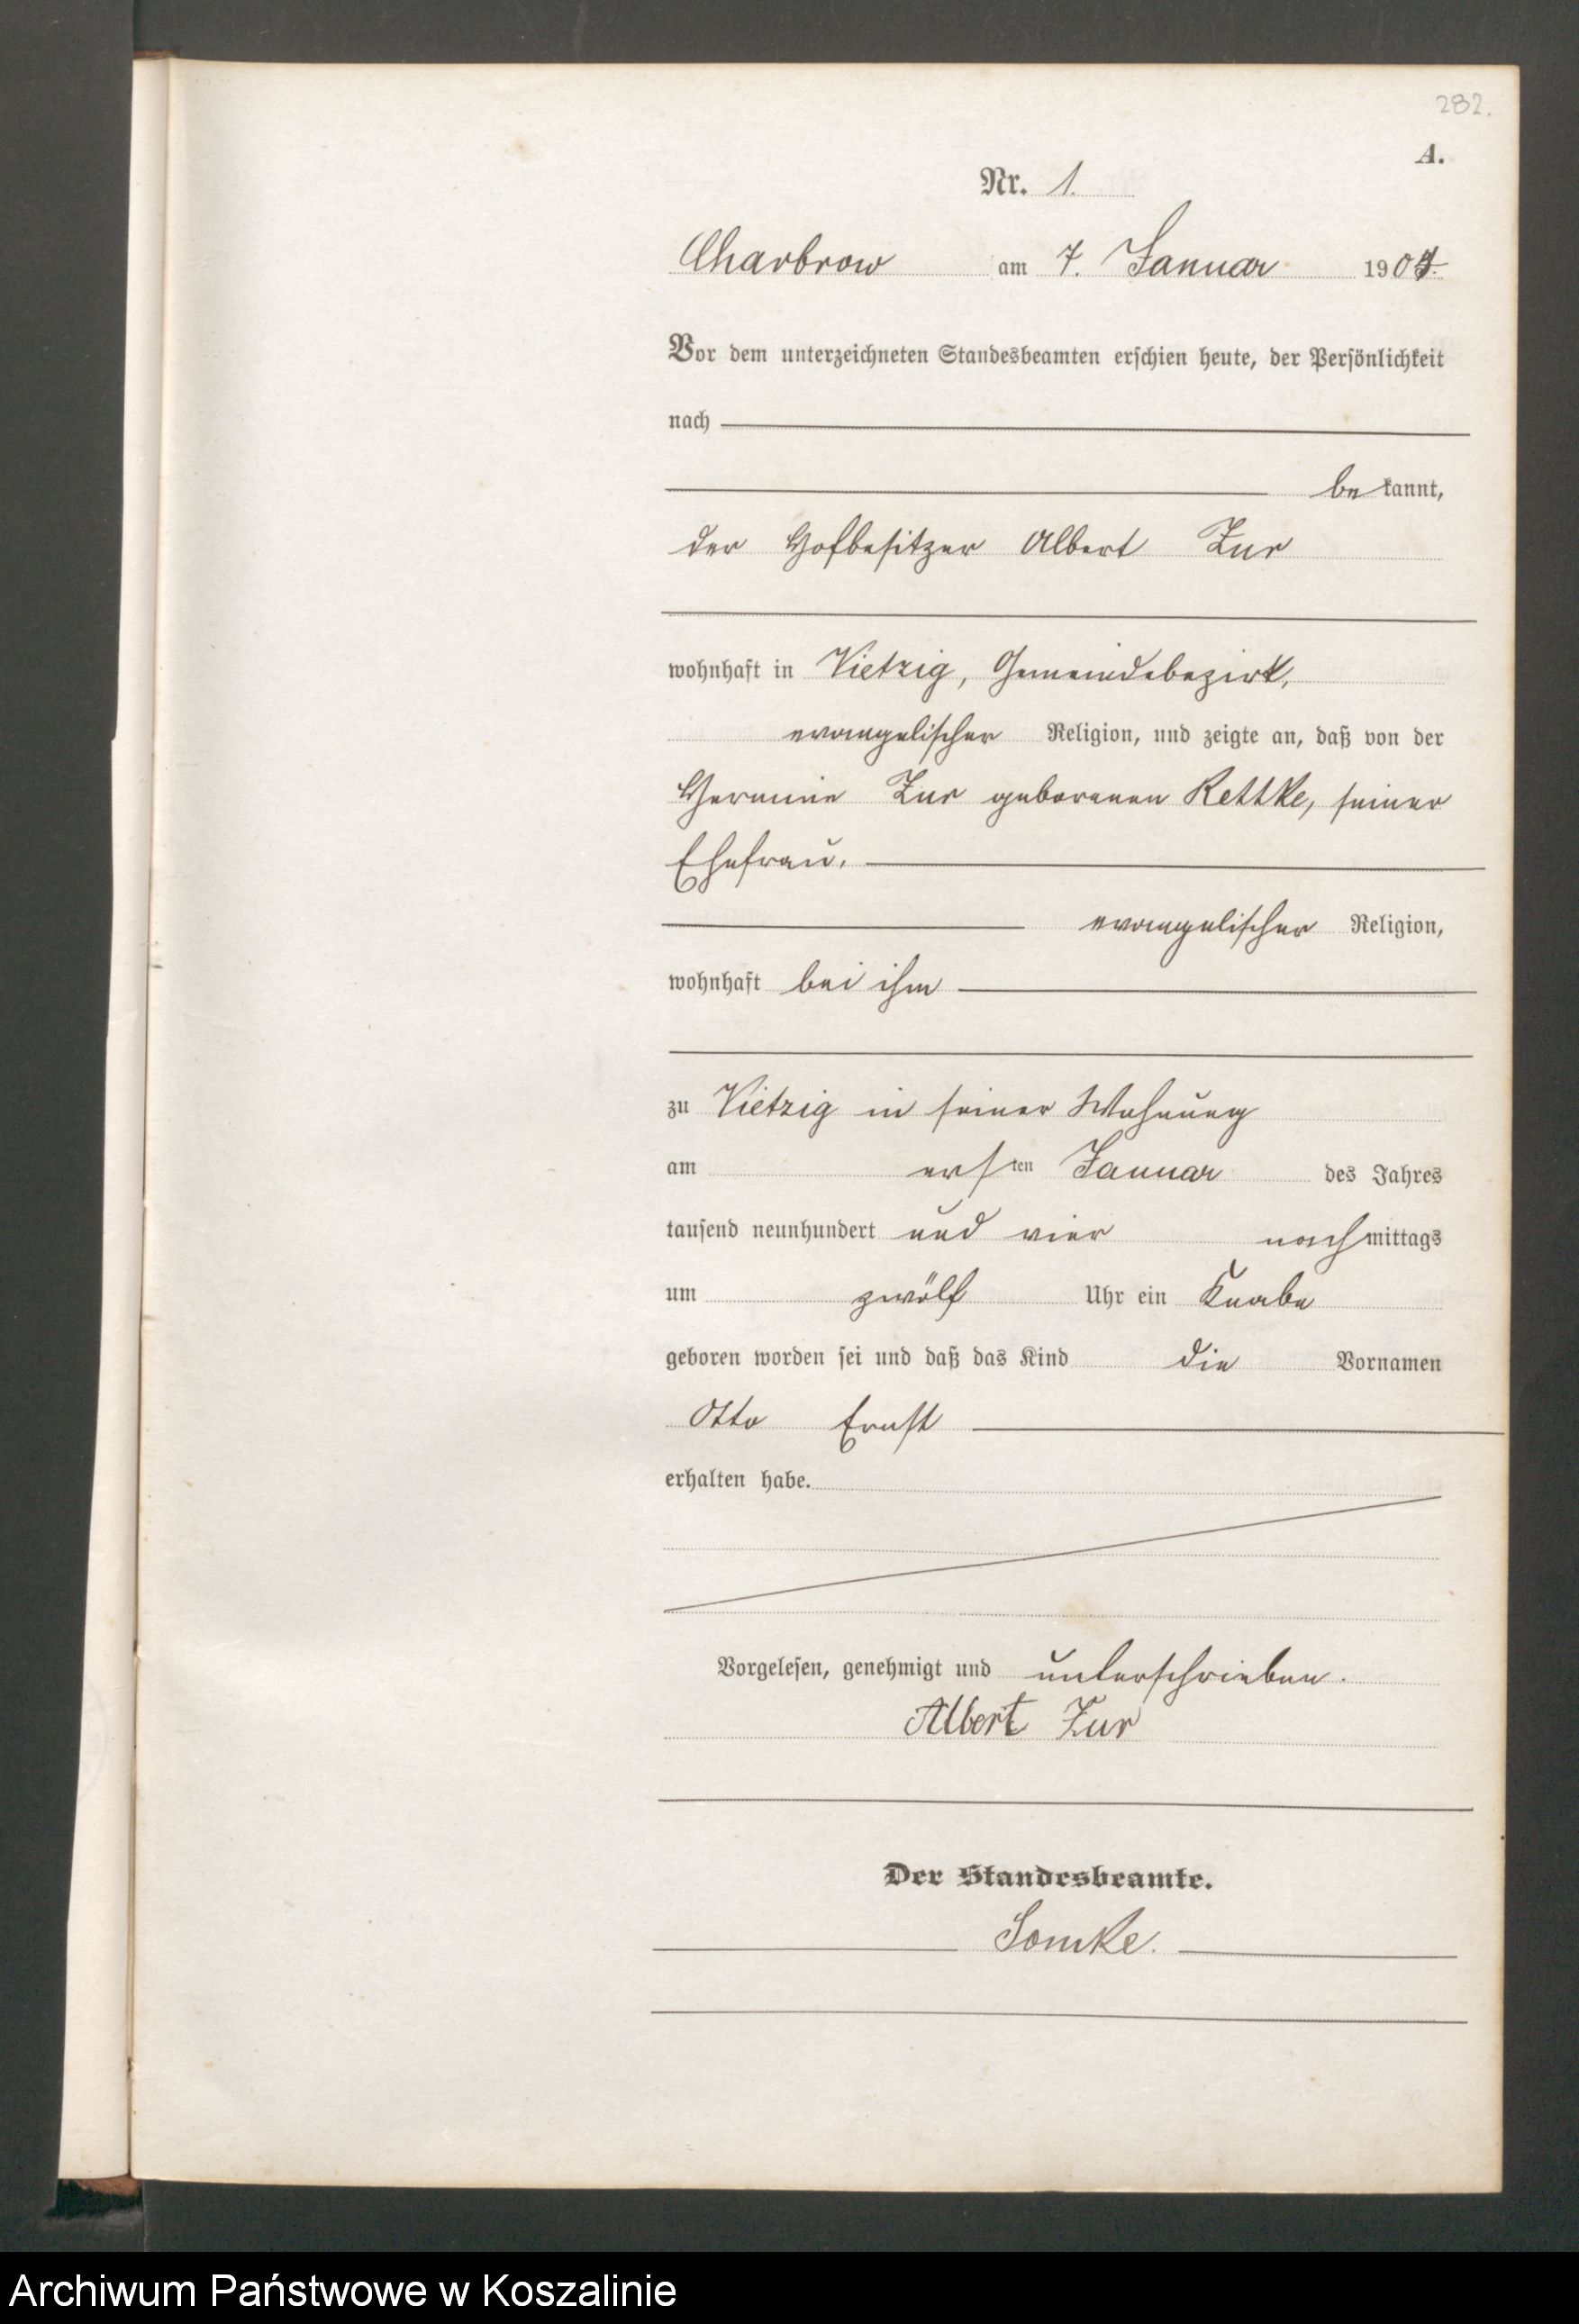 282.
A.
Nr. 1.
Charbrow am 7. Januar 1904.
Vor dem unterzeichneten Standesbeamten erschien heute, der Persönlichkeit
nach
be kannt,
der Hofbesitzer Albert Zur
wohnhaft in Vietzig, Gemeindebezirk,
evangelischer Religion, und zeigte an, daß von der
Hermine Zur geborenen Rettke, seiner
Ehefrau.
evangelischer Religion,
wohnhaft bei ihm
zu Vietzig in seiner Wohnung
am ersten Januar des Jahres
tausend neunhundert und vier nachmittags
um zwölf Uhr ein Knabe
geboren worden sei und daß das Kind die Vornamen
Otto Ernst
erhalten habe.
Vorgelesen, genehmigt und unterschrieben.
Albert Zur
Der Standesbeamte.
Somke.
Archiwum Państwowe w Koszalinie